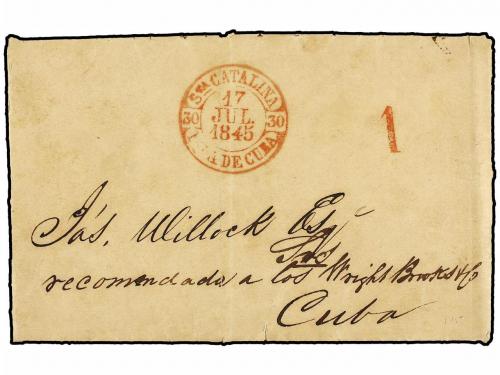 Sta CATALINA
17
JUL.
1845
30 30
ISLA DE CUBA
1
Jas. Willock Esqr
recomendada a los Wright Brooks & Co
Cuba